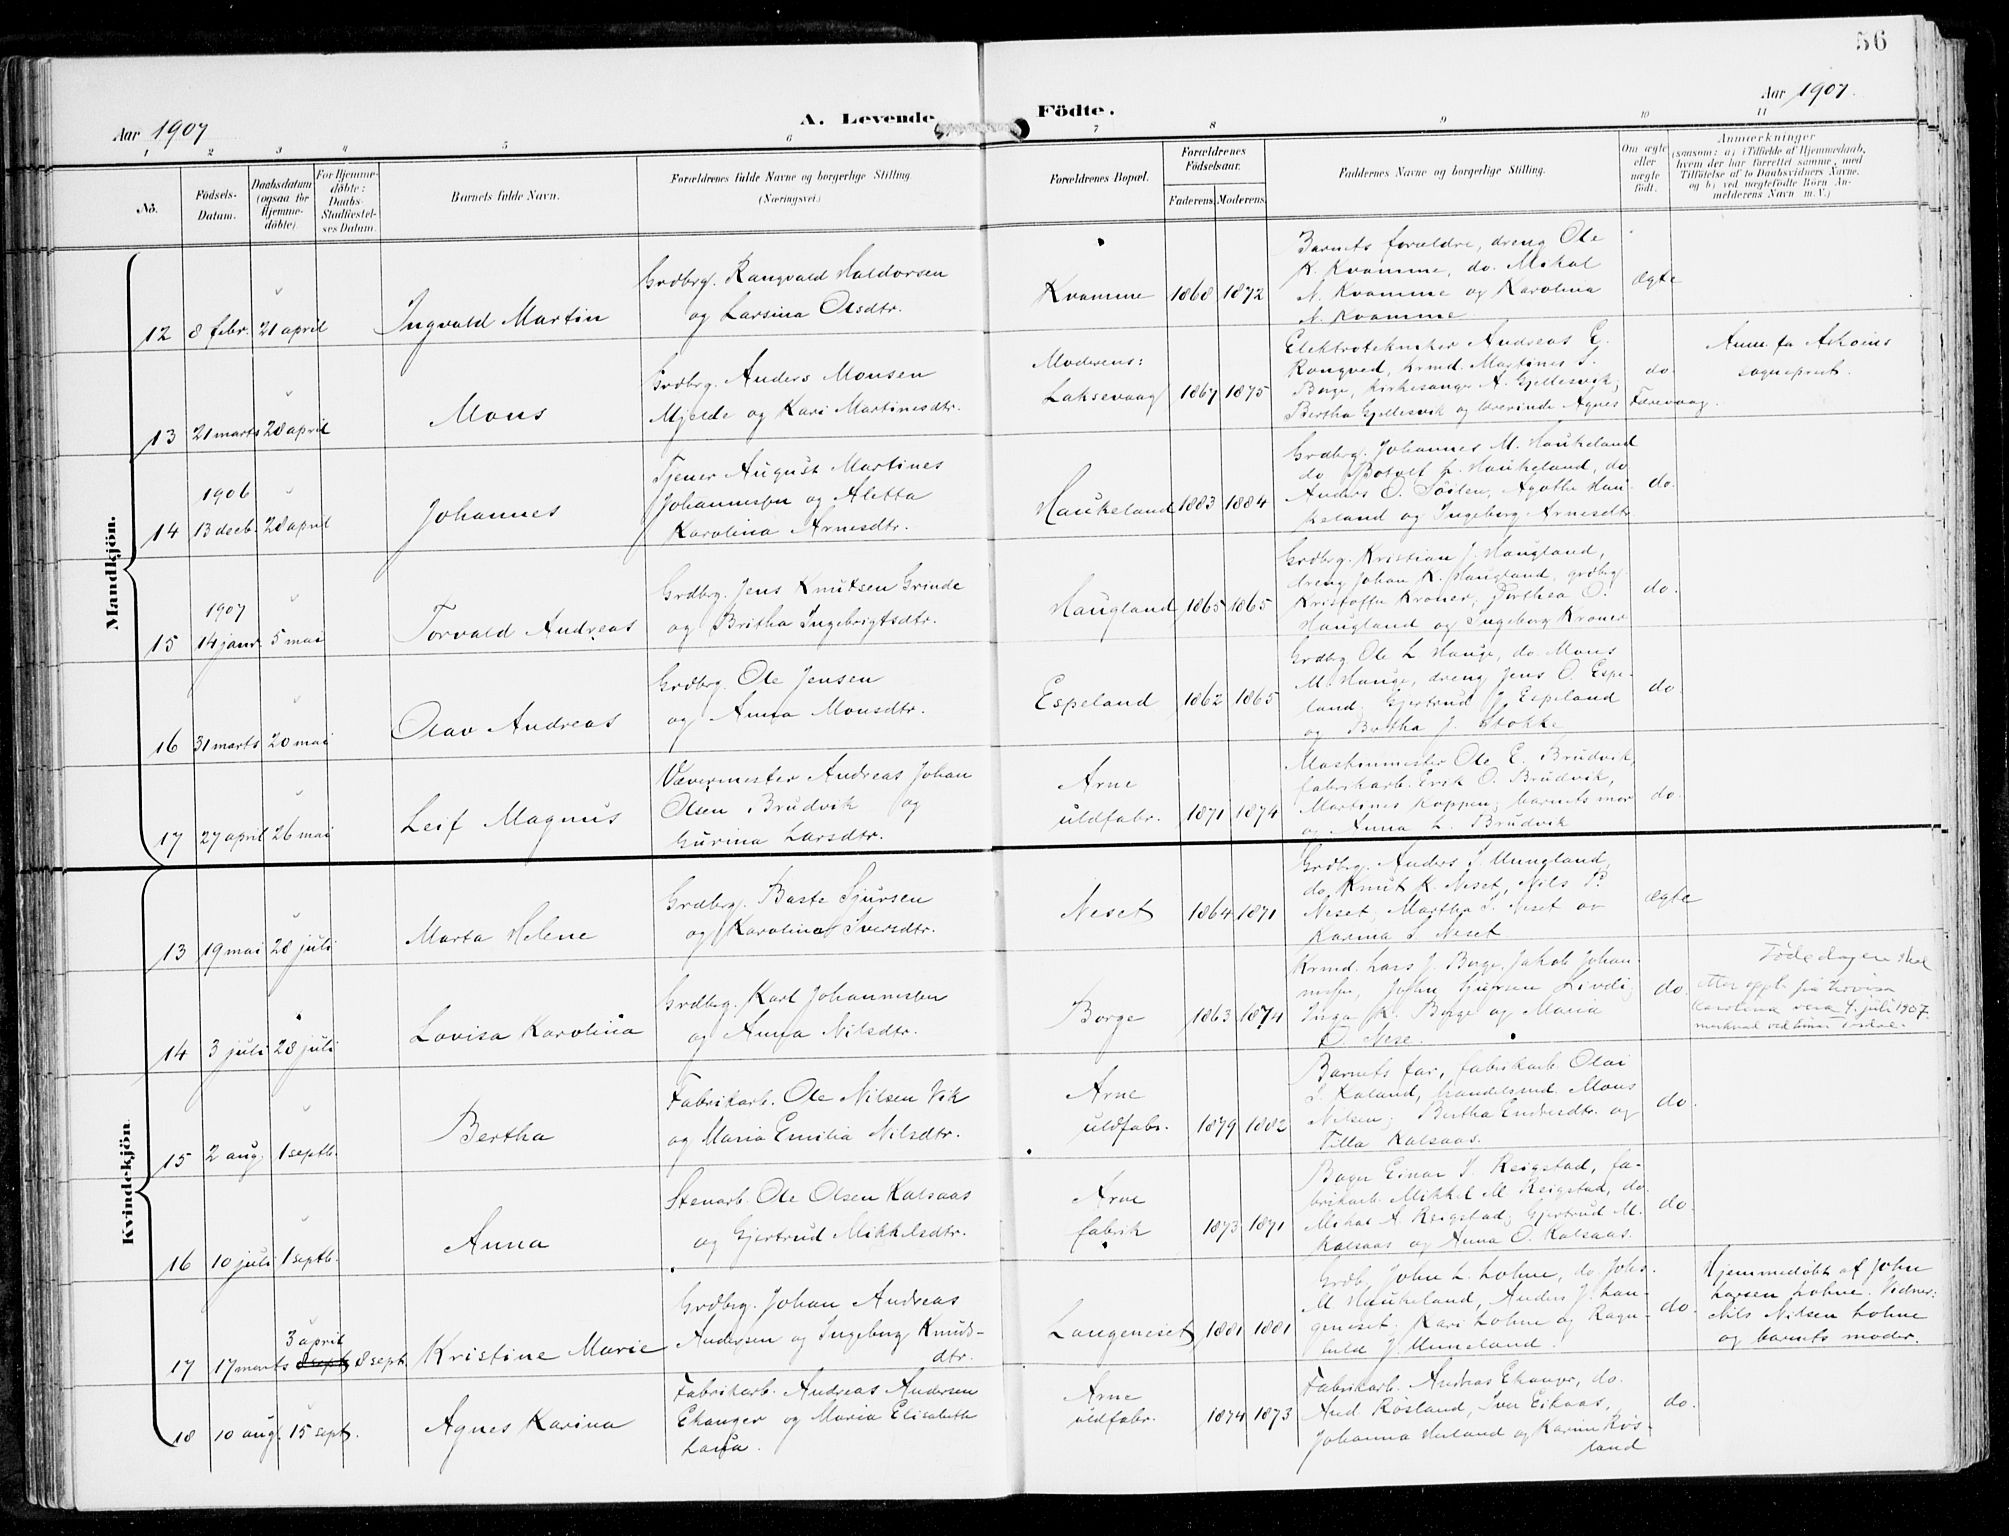 56
Aar 1907
A. Levende
Födte.
Aar 1907.
1 2 3 4 5 6 7 8 9 10 11
No.
Födsels-
Datum.
Daabsdatum
(ogsaa for
Hjemme-
döbte)
For Hjemme-
döbte:
Daabs-
Stadfæstel-
ses Datum.
Barnets fulde Navn.
Forældrenes fulde Navne og borgerlige Stilling.
(Næringsvei.)
Forældrenes Bopæl.
Forældrenes
Födselsaar.
Faderens. Moderens.
Faddernes Navne og borgerlige Stilling.
Om ægte
eller
uægte
födt.
Anmærkninger
(saasom: a) i Tilfælde af Hjemmedaab,
hvem der har forrettet samme, med
Tilföielse af to Daabsvidners Navne,
og b) ved uægtefödte Börn An-
melderens Navn m. V.)
Mandkjön.
12 8 febr. 21 april
Ingvald Martin
Grdbrg. Rangvald Haldorsen
og Larsina Olsdtr.
Kvamme 1868 1872
Barnets forældre, dreng Ole
K. Kvamme, do. Mikal
N. Kvamme og Karolina
N. Kvamme
ægte
13 21 marts 28 april
Mons
Grdbrg. Anders Monsen
Mjelde og Kari Martinesdtr.
Moderens:
Laksevaag 1867 1875
Elektrotekniker Andreas E.
Rongved, krmd. Martines S.
Borge, kirkesanger A. Gjellesvik,
Bertha Gjellesvik og lærerinde Agnes Færevaag.
do.
Anm. fra Askøens
sogneprest.
14 1906
13 decb. 28 april
Johannes
Tjener August Martines
Johannessen og Aletta
Karolina Arnesdtr.
Haukeland 1883 1884
Grdbrg. Johannes M. Haukeland
do Botolf L. Haukeland, do
Anders O. Söilen, Agathe Hau-
keland og Ingeborg Arnesdtr
do.
15 1907
14 janr. 5 mai
Torvald Andreas
Grdbrg. Jens Knutsen Grinde
og Britha Ingebrigtsdtr.
Haugland 1865 1865
Grdbrg. Kristian J. Haugland,
dreng Johan K. Haugland, grdbrg.
Kristoffer Kroner, Dorthea O.
Haugland og Ingeborg Kroner
do.
16 31 marts 20 mai
Olav Andreas
Grdbrg. Ole Jensen
og Anna Monsdtr.
Espeland 1862 1865
Grdbrg Ole L. Hauge, do. Mons
M. Hauge, dreng Jens O. Espe-
land, Gjertrud J. Espeland
og Bertha J. Stokke
do.
17 27 april 26 mai
Leif Magnus
Vævermester Andreas Johan
Olsen Brudvik og
Gurina Larsdtr.
Arne
uldfabr. 1871 1874
Maskinmester Ole E. Brudvik,
fabrikarb. Erik O. Brudvik,
Martines Koppen, barnets mor
og Anna L. Brudvik
do.
Kvindekjön.
13 19 mai 28 juli
Marta Helene
Grdbrg. Baste Sjursen
og Karolina Iversdtr.
Neset 1864 1871
Grdbrg. Anders S. Unneland,
do. Knut K. Neset, Nils P.
Neset, Martha S. Neset av
Karina S. Neset
ægte
14 3 juli 28 juli
Lovisa Karolina
Grdbrg. Karl Johannessen
og Anna Nilsdtr.
Borge 1863 1874
Krmd. Lars J. Borge, Jakob Johan-
nessen, John Gjursen Livdi,
Inga K. Borge og Maria
O. Nese.
do.
Fødedagen skal
etter oppl. frå Lovisa
Karolina vera 4. juli 1907.
15 2 aug. 1 septb.
Bertha
Fabrikarb. Ole Nilsen Vik
og Maria Emilia Nilsdtr.
Arne
uldfabr. 1879 1882
Barnets far, fabrikarb Olai
S. Kaland, handelsmd. Mons
Nilsen, Bertha Endresdtr. og
Tilla Kalsaas.
do.
16 10 juli 1 septb.
Anna
Stenarb. Ole Olsen Kalsaas
og Gjertrud Mikkelsdtr.
Arne
fabrik 1873 1871
Bager Einar J. Reigstad, fa-
brikarb. Mikkel M. Reigstad, do.
Mikal A. Reigstad, Gjertrud M.
Kalsaas og Anna O. Kalsaas.
do.
17 17 marts 3 april
8 sept. 8 sept.
Kristine Marie
Grdbrg. Johan Andreas
Andersen og Ingeborg Knuds-
dtr.
Langeneset 1881 1881
Grdb. John L. Lohne, do. Johs.
M. Haukeland, Anders J. Lan-
geneset, Kari Lohne og Ragn-
hild J. Unneland.
do.
Hjemmedøbt af John
Larsen Lohne. Vidner:
Nils Nilsen Lohne
og barnets moder.
18 10 aug. 15 sept.
Agnes Karina
Fabrikarb. Andreas Andersen
Ekanger og Maria Elisabeth
Arne
uldfabr. 1874 1873
Fabrikarb. Andreas Ekanger, do.
And. Rösland, Iver Eikaas,
Johanna Herland og Karine Rös-
land
do.